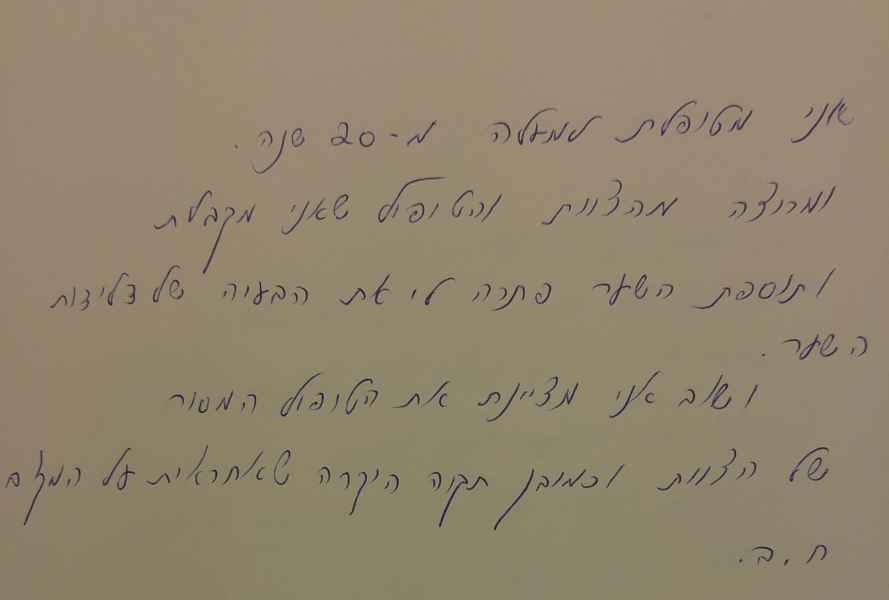 אני מטופלת למעלה מ-20 שנה.
ומרוצה מהצוות והטיפול שאני מקבלת
ותוספת השער פתרה לי את הבעיה של דלילות
השער.
ושוב אני מציינת את הטיפול המסור
של הצוות וכמובן תקוה היקרה שאחראית על המקום
ח.ב.